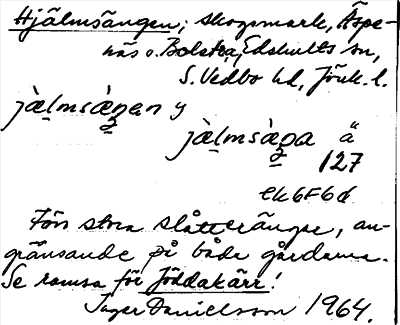 Hjälmsängen; skogsmark, Äspe-
näs o. Bolstra, Edshults sn,
S. Vedbo hd, Jönk. l.
jàlmsàŋen y
jàlmsàŋa ä
127
ek 6F6d
Förr stora slåtterängar, an-
gränsande på båda gårdarna.
Se ramsa för Jöddakärr!
Inger Danielsson 1964.